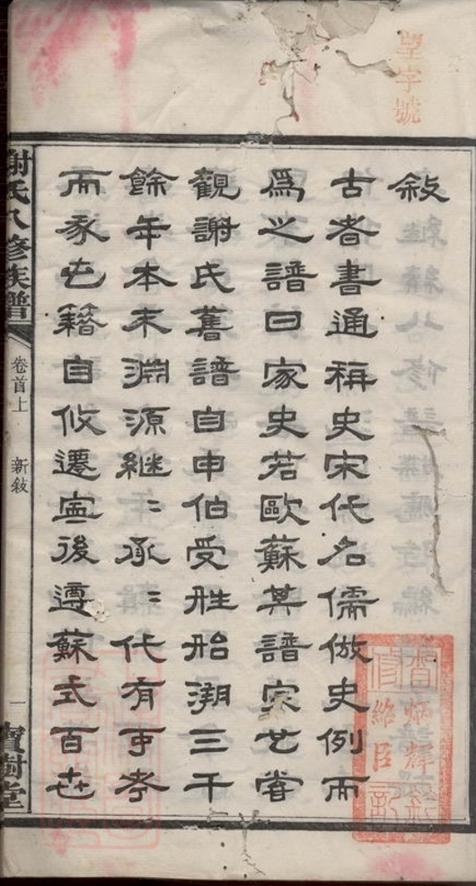 望字號
敍
古者書通稱史宋代名儒倣史例而
為之譜曰家史若歐蘇其譜家也嘗
觀謝氏舊譜自申伯受姓胎溯三千
餘年本末淵源繼〻承〻代有可考
而家世籍自攸遷寧後遵蘇式百世
謝氏八修族譜
卷首上
新敍
一
寶樹堂